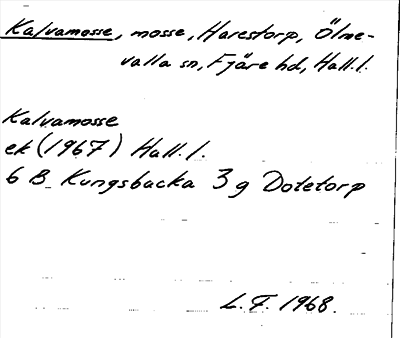 Kalvamosse, mosse, Harestorp, Ölme-
valla sn, Fjäre hd, Hall.l.
Kalvamosse
ek (1967) Hall.l.
6 B Kungsbacka 3 g Dotetorp
L.F. 1968.